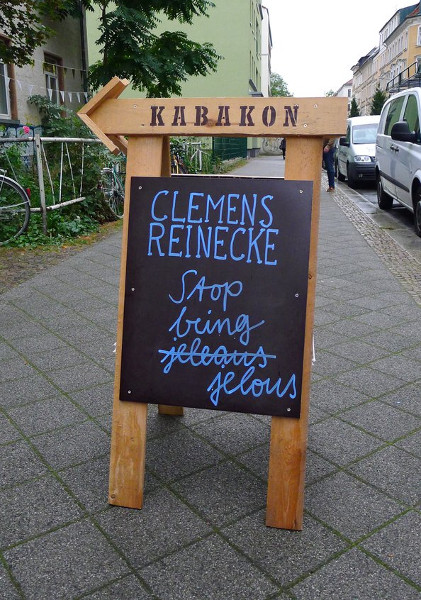 KABAKON
CLEMENS
REINECKE
Stop
being
jeleaus
jelous